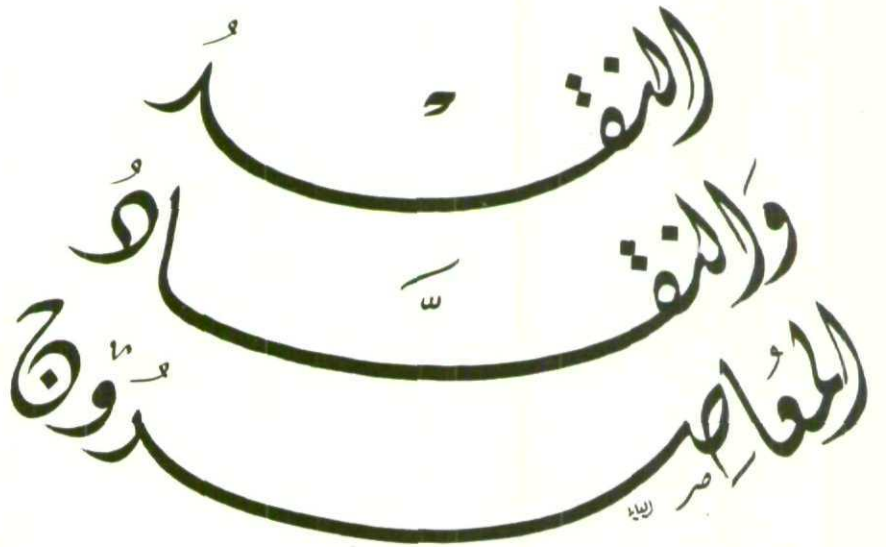 النقْدُ
وَالنقَّادُ
المُعاصِرُون